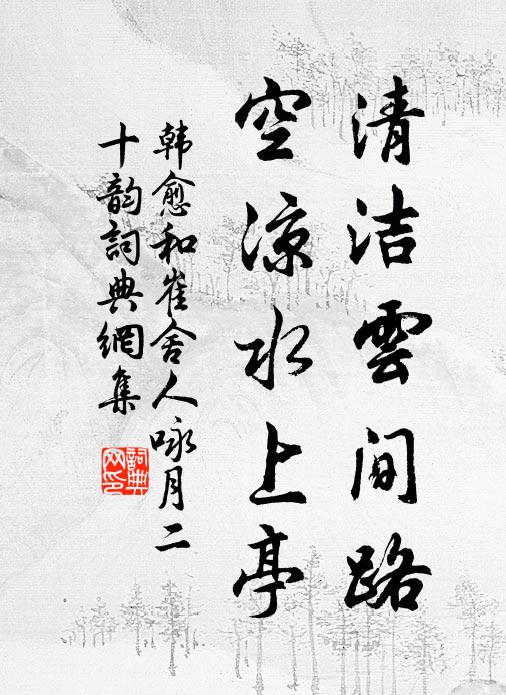 清洁雲间路
空凉水上亭
韩愈和崔舍人咏月二
十韵詞典網集
詞典
网印